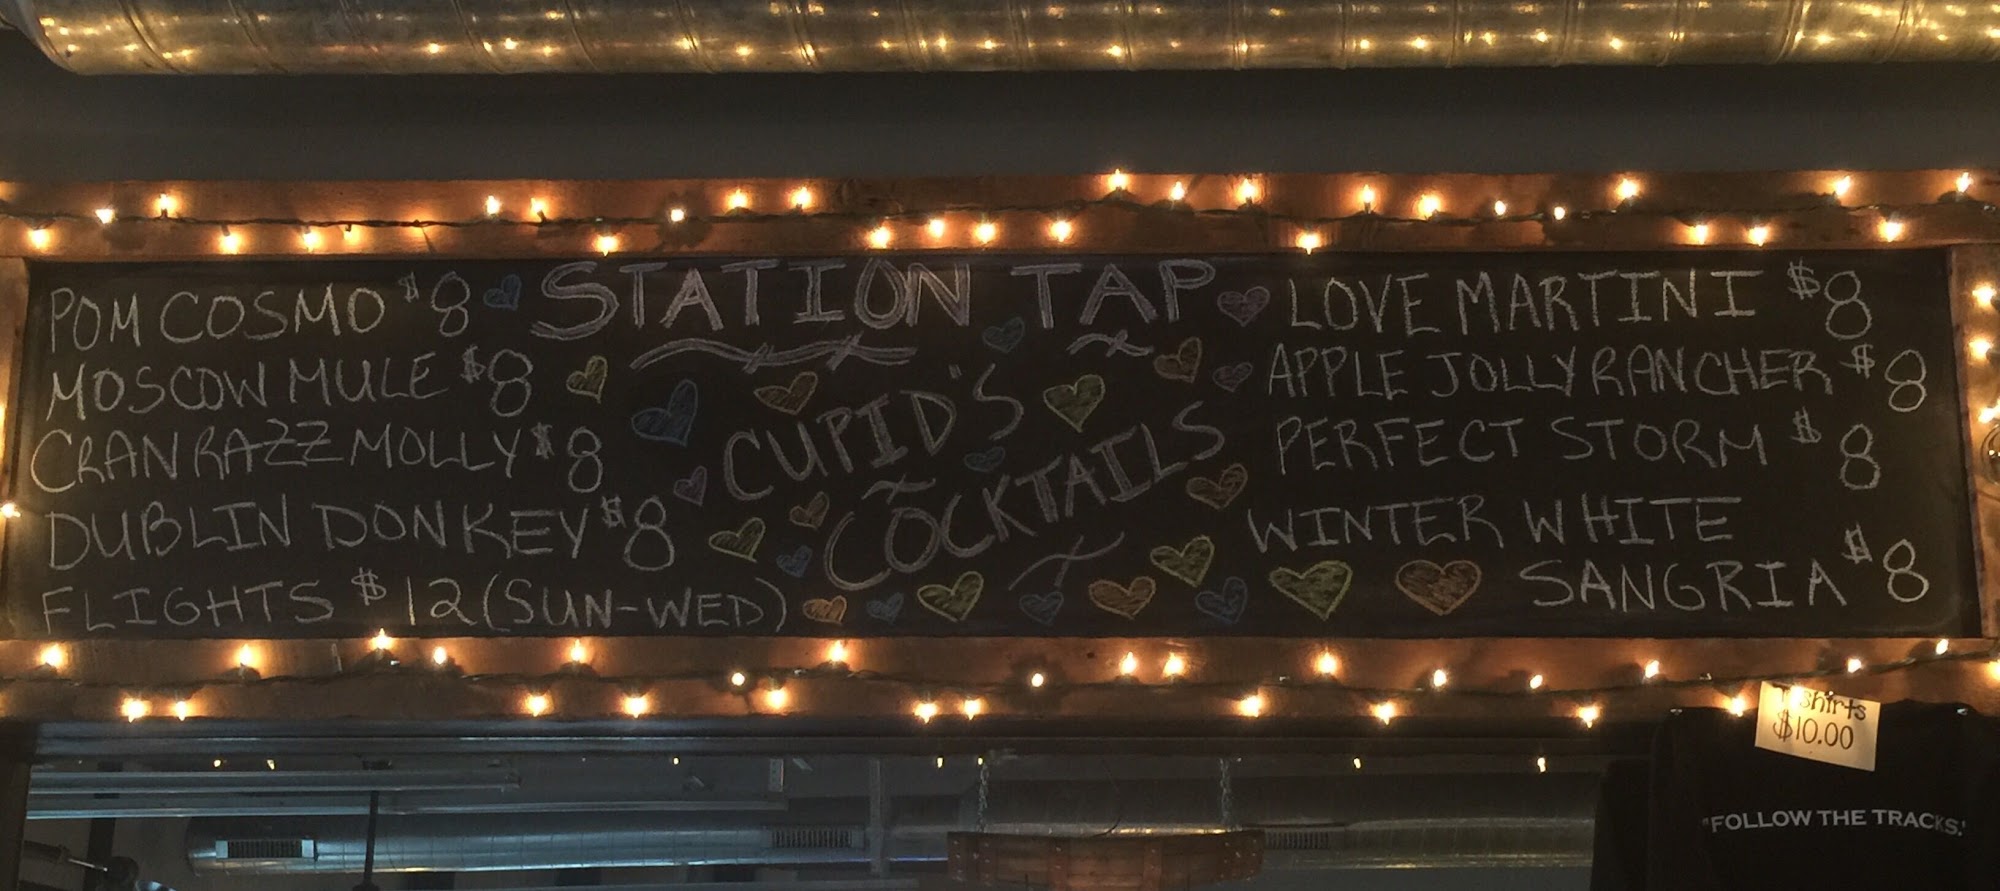 POM COSMO $8
MOSCOW MULE $8
CRANRAZZ MOLLY $8
DUBLIN DONKEY $8
FLIGHTS $12 (SUN-WED)
STATION TAP
CUPID'S
COCKTAILS
LOVE MARTINI $8
APPLE JOLLY RANCHER $8
PERFECT STORM $8
WINTER WHITE
SANGRIA $8
T shirts
$10.00
"FOLLOW THE TRACKS."